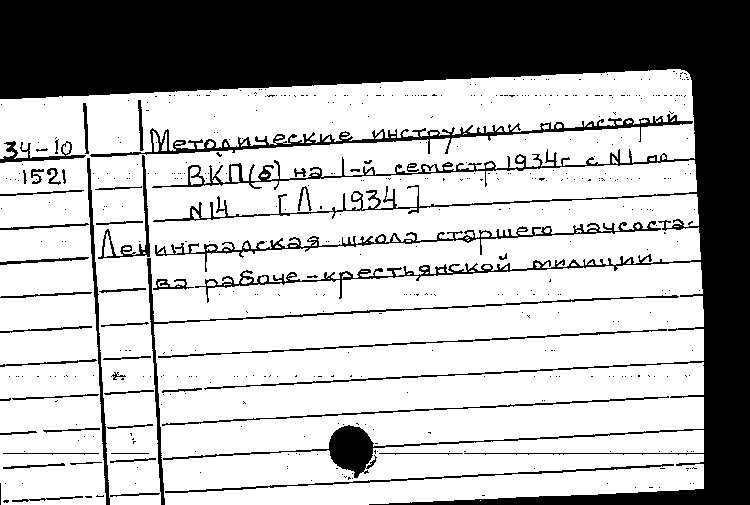 34-10 Методические инструкции по истории
1521 ВКП(б) на 1-й семестр 1934г с N1 по
N14. [Л.,1934].
Ленинградская школа старшего начсоста-
ва рабоче-крестьянской милиции.